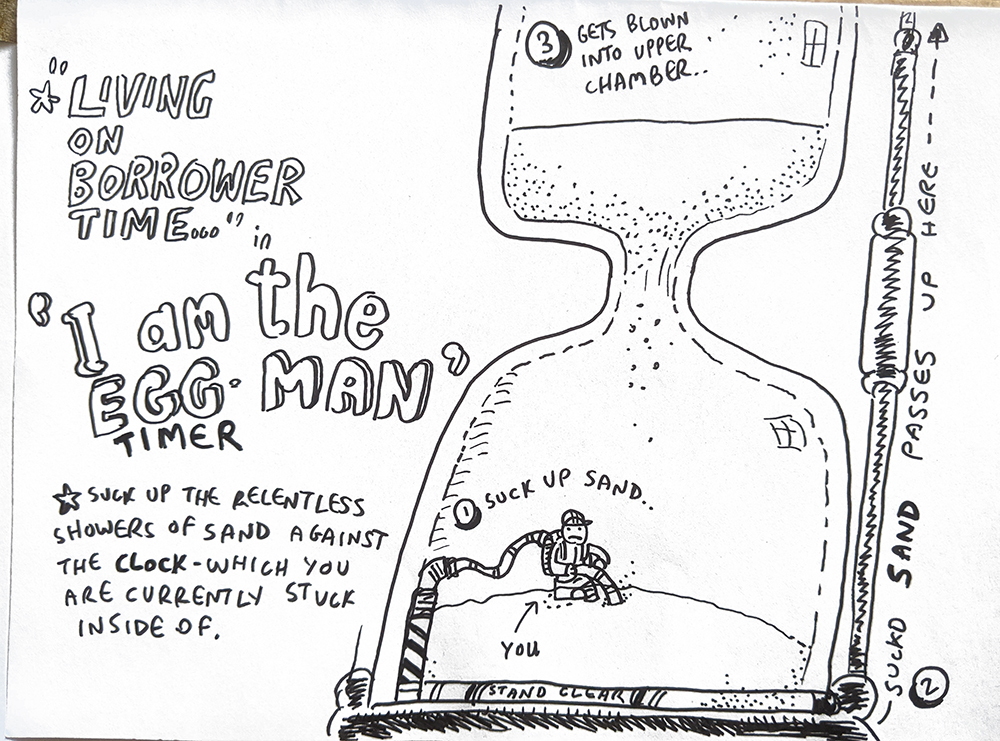 ☆"LIVING
ON
BORROWER
TIME..."
in
'I am the
EGG-MAN'
TIMER
☆ SUCK UP THE RELENTLESS
SHOWERS OF SAND AGAINST
THE CLOCK - WHICH YOU
ARE CURRENTLY STUCK
INSIDE OF.
③ GETS BLOWN
INTO UPPER
CHAMBER..
① SUCK UP SAND.
YOU
STAND CLEAR
② SUCKD SAND PASSES UP HERE